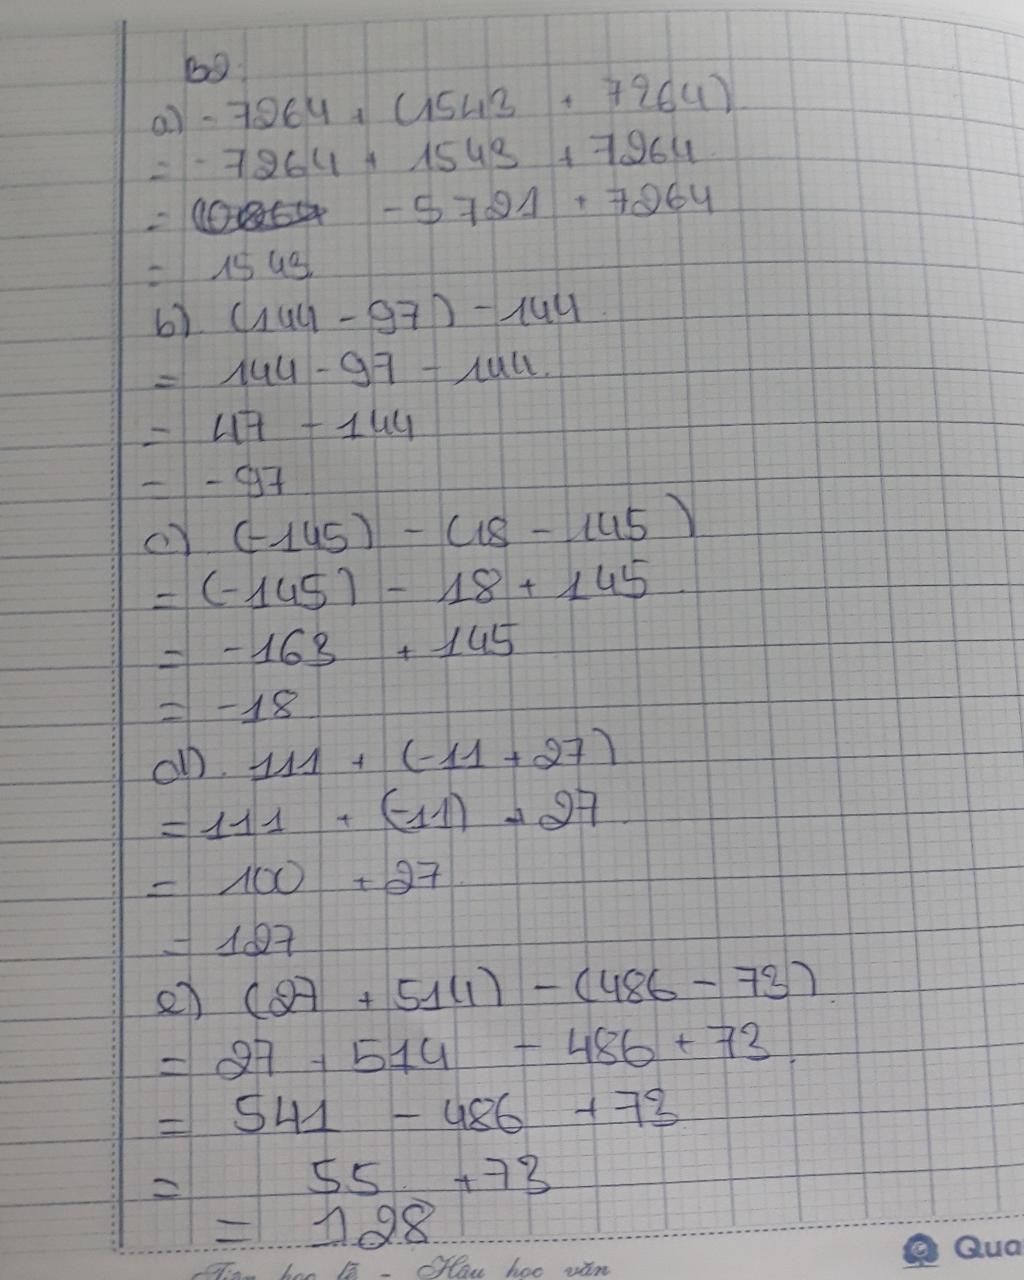 B2
a) - 7264 + (1543 + 7264)
= - 7264 + 1543 + 7264
= - 5721 + 7264
= 1543
b) (144 - 97) - 144
= 144 - 97 - 144
= 47 - 144
= - 97
c) (-145) - (18 - 145)
= (-145) - 18 + 145
= -163 + 145
= -18
d) 111 + (-11 + 27)
= 111 + (-11) + 27
= 100 + 27
= 127
e) (27 + 514) - (486 - 73)
= 27 + 514 - 486 + 73
= 541 - 486 + 73
= 55 + 73
= 128
Tiên học lễ - Hậu học văn
Qua